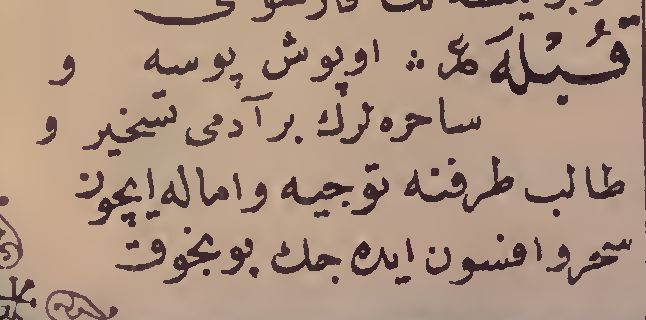 قُبْلَه عر : اوپوش پوسه و
ساحره لرك بر آدمى تسخير و
طالب طرفنه توجيه و اماله ايچون
سحر و افسون ايده جك بونجوق